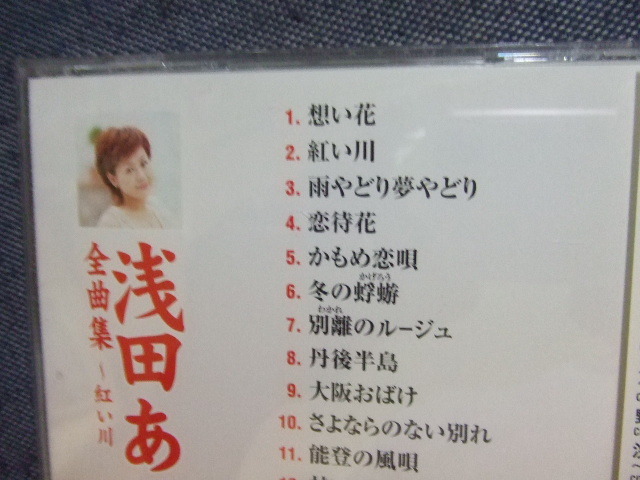 浅田あ
全曲集～紅い川
1. 想い花
2. 紅い川
3. 雨やどり夢やどり
4. 恋待花
5. かもめ恋唄
かげろう
6. 冬の蜉蝣
わかれ
7. 別離のルージュ
8. 丹後半島
9. 大阪おばけ
10. さよならのない別れ
11. 能登の風唄